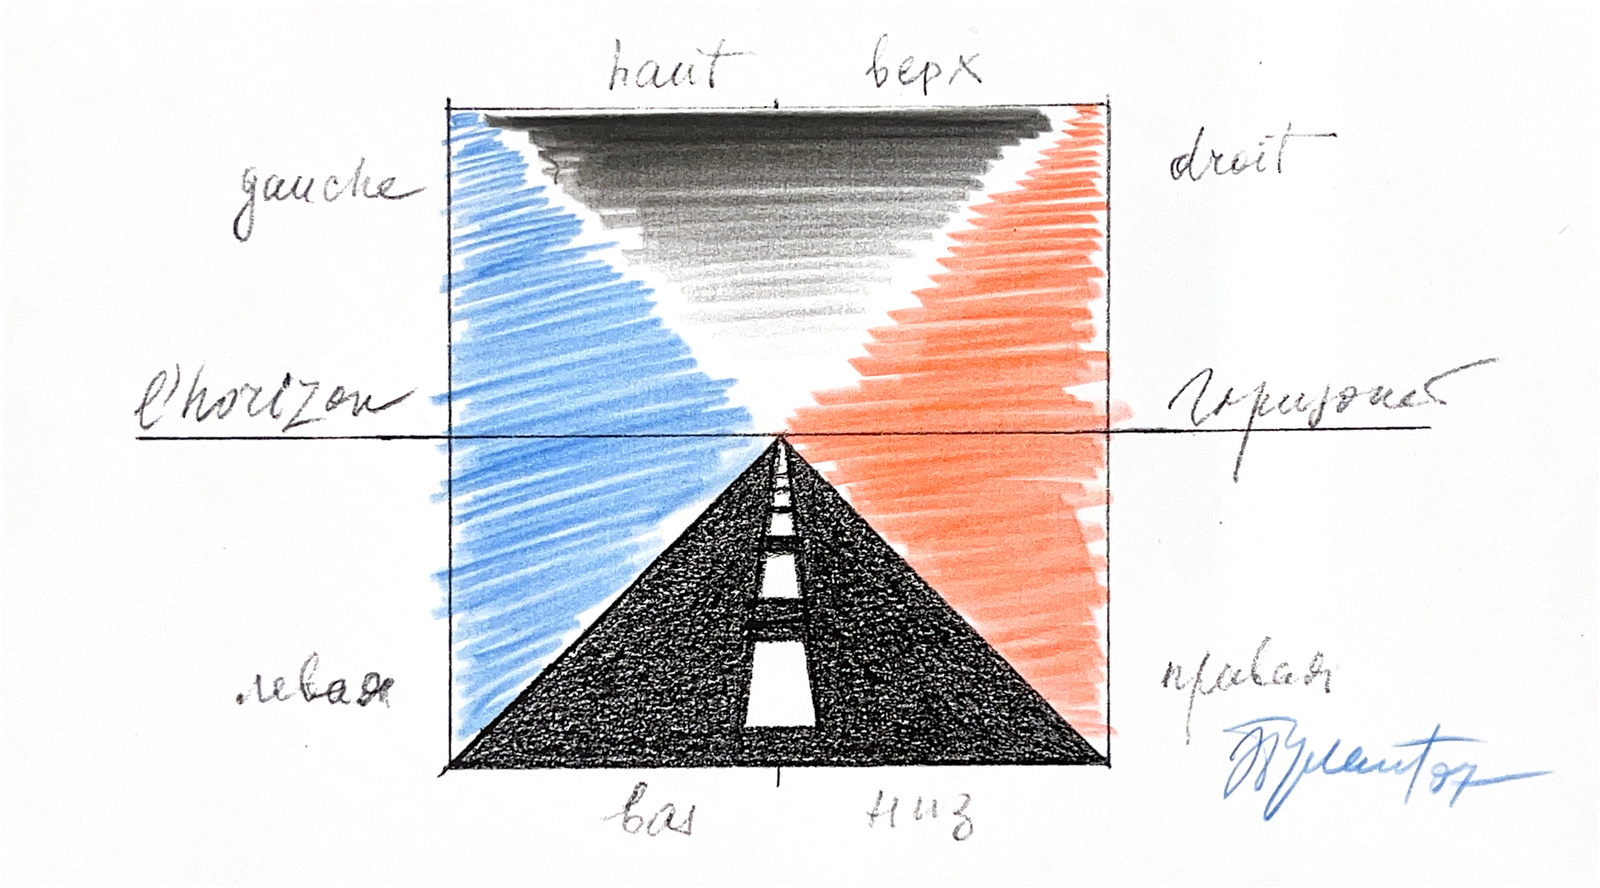 haut верх
gauche droit
l'horizon горизонт
левая правая
bas низ